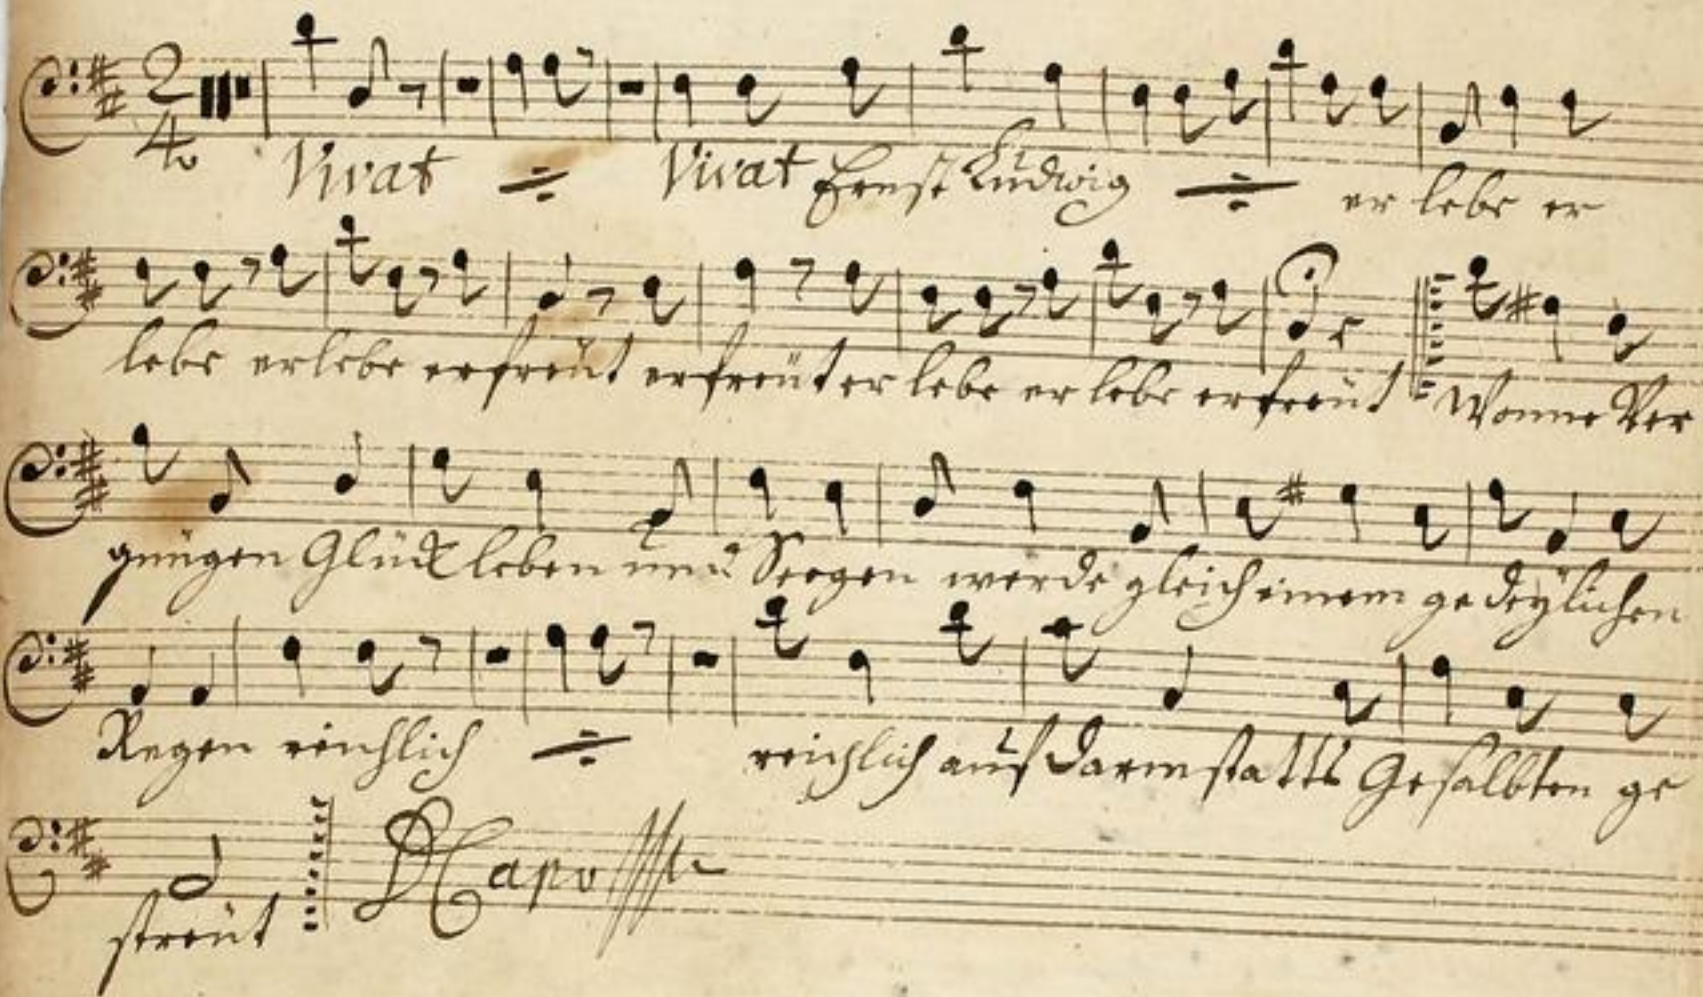 2/4
Vivat ÷ Vivat Ernst Ludwig ÷ er lebe er
lebe er lebe erfreüt erfreüt er lebe er lebe erfreüt Wonne Ver
gnügen Glück leben und Seegen werde gleich einem gedeÿlichen
Regen reichlich ÷ reichlich auf Darmstatts Gesalbten ge
streüt D Capo